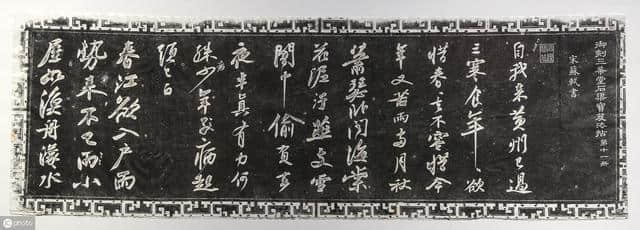 御刻三希堂石渠寶笈法帖第十一冊
宋蘇軾書
自我來黃州已過
三寒食年〻欲
惜春去不容惜今
年又苦雨兩月秋
蕭瑟臥聞海棠
花泥污燕支雪
闇中偷負去
夜半真有力何
殊病少年子病起
頭已白
春江欲入戶雨
勢來不已雨小
屋如漁舟濛水
photo